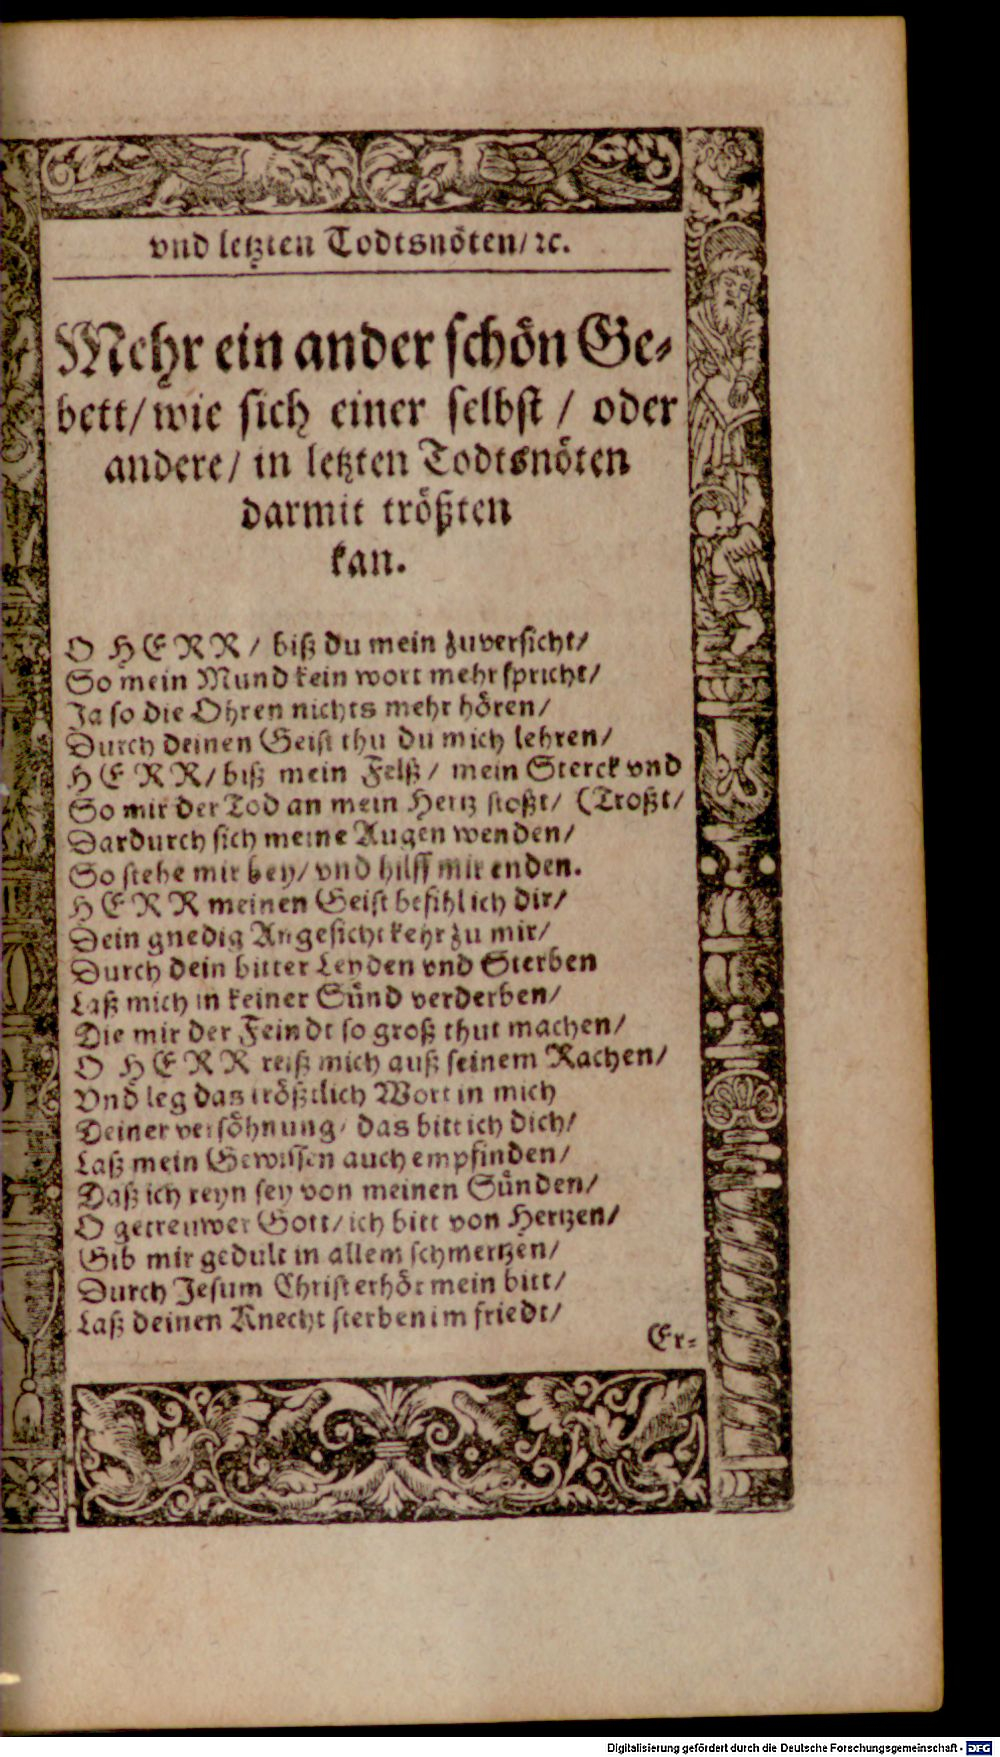 vnd letzten Todtsnöten/ ꝛc.
Mehr ein ander schön Ge-
bett/ wie sich einer selbst / oder
andere/ in letzten Todtsnöten
darmit trößten
kan.
O HERR / biß du mein zuversicht/
So mein Mund kein wort mehr spricht/
Ja so die Ohren nichts mehr hören/
Durch deinen Geist thu du mich lehren/
HERR/ biß mein Felß / mein Sterck vnd
So mir der Tod an mein Hertz stoßt/ (Troßt/
Dardurch sich meine Augen wenden/
So stehe mir bey/ vnd hilff mir enden.
HERR meinen Geist befihl ich dir/
Dein gnedig Angesicht kehr zu mir/
Durch dein bitter Leyden vnd Sterben
Laß mich in keiner Sünd verderben/
Die mir der Feindt so groß thut machen/
O HERR reiß mich auß seinem Rachen/
Vnd leg das trößtlich Wort in mich
Deiner versöhnung/ das bitt ich dich/
Laß mein Gewissen auch empfinden/
Daß ich reyn sey von meinen Sünden/
O getreuwer Gott/ ich bitt von Hertzen/
Gib mir gedult in allem schmertzen/
Durch Jesum Christ erhör mein bitt/
Laß deinen Knecht sterben im friedt/
Er-
Digitalisierung gefördert durch die Deutsche Forschungsgemeinschaft - DFG